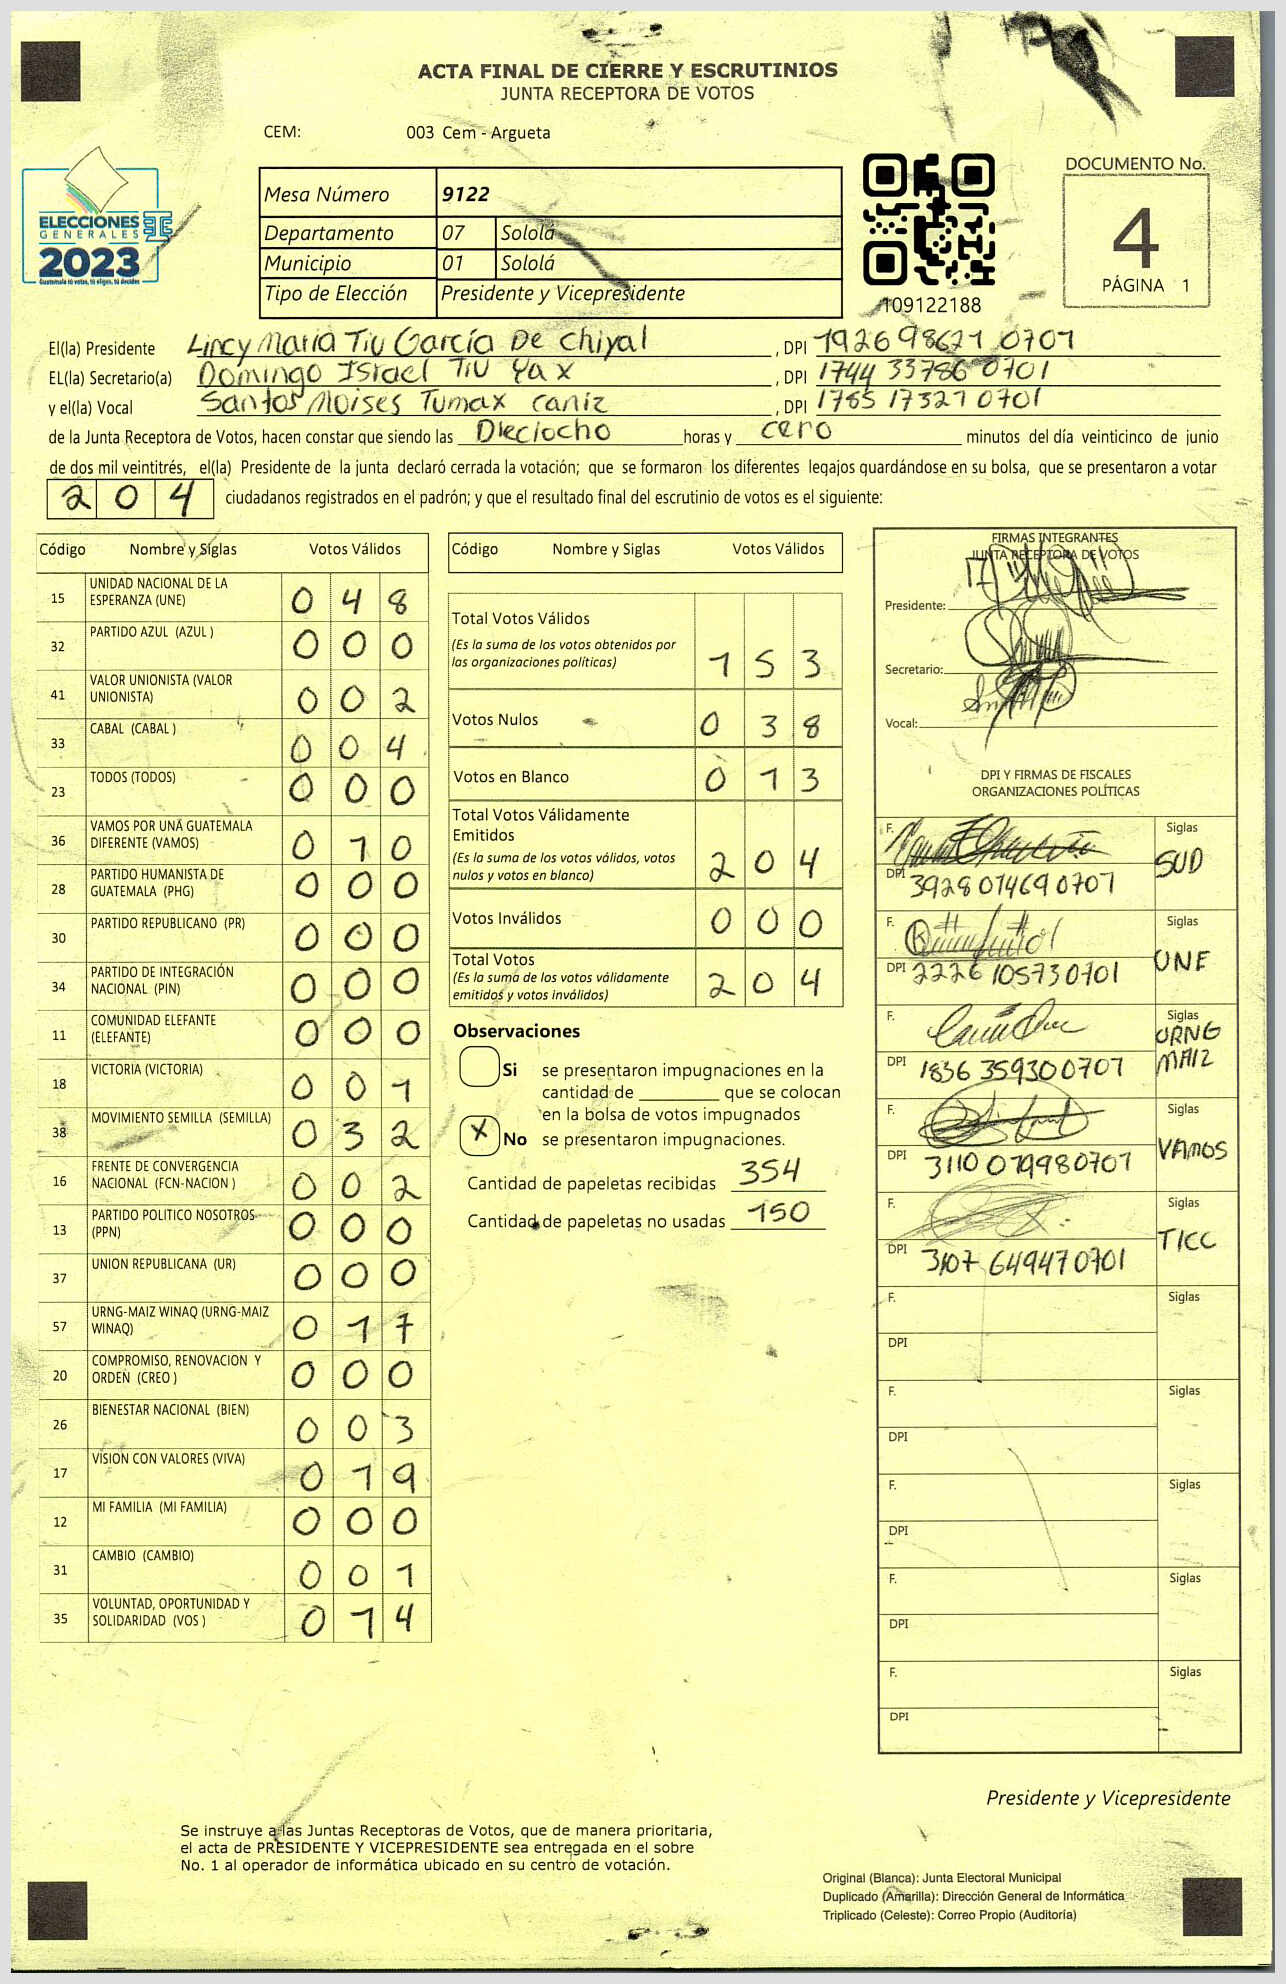 ACTA FINAL DE CIERRE Y ESCRUTINIOS
JUNTA RECEPTORA DE VOTOS
CEM: 003 Cem - Argueta
ELECCIONES
GENERALES
2023
Guatemala tú votas, tú eliges, tú decides
Mesa Número 9122
Departamento 07 Sololá
Municipio 01 Sololá
Tipo de Elección Presidente y Vicepresidente
109122188
DOCUMENTO No.
4
PÁGINA 1
El(la) Presidente Lincy Maria Tiu García De Chiyal , DPI 1926 98621 0701
EL(la) Secretario(a) Domingo Israel Tiu Yax , DPI 1744 33786 0701
y el(la) Vocal Santos Moises Tumax caniz , DPI 1785 17327 0701
de la Junta Receptora de Votos, hacen constar que siendo las Dieciocho horas y cero minutos del día veinticinco de junio
de dos mil veintitrés, el(la) Presidente de la junta declaró cerrada la votación; que se formaron los diferentes legajos guardándose en su bolsa, que se presentaron a votar
204 ciudadanos registrados en el padrón; y que el resultado final del escrutinio de votos es el siguiente:
Código Nombre y Siglas Votos Válidos
15 UNIDAD NACIONAL DE LA ESPERANZA (UNE) 0 4 8
32 PARTIDO AZUL (AZUL ) 0 0 0
41 VALOR UNIONISTA (VALOR UNIONISTA) 0 0 2
33 CABAL (CABAL ) 0 0 4
23 TODOS (TODOS) 0 0 0
36 VAMOS POR UNA GUATEMALA DIFERENTE (VAMOS) 0 1 0
28 PARTIDO HUMANISTA DE GUATEMALA (PHG) 0 0 0
30 PARTIDO REPUBLICANO (PR) 0 0 0
34 PARTIDO DE INTEGRACIÓN NACIONAL (PIN) 0 0 0
11 COMUNIDAD ELEFANTE (ELEFANTE) 0 0 0
18 VICTORIA (VICTORIA) 0 0 1
38 MOVIMIENTO SEMILLA (SEMILLA) 0 3 2
16 FRENTE DE CONVERGENCIA NACIONAL (FCN-NACION ) 0 0 2
13 PARTIDO POLITICO NOSOTROS (PPN) 0 0 0
37 UNION REPUBLICANA (UR) 0 0 0
57 URNG-MAIZ WINAQ (URNG-MAIZ WINAQ) 0 1 7
20 COMPROMISO, RENOVACION Y ORDEN (CREO ) 0 0 0
26 BIENESTAR NACIONAL (BIEN) 0 0 3
17 VISION CON VALORES (VIVA) 0 1 9
12 MI FAMILIA (MI FAMILIA) 0 0 0
31 CAMBIO (CAMBIO) 0 0 1
35 VOLUNTAD, OPORTUNIDAD Y SOLIDARIDAD (VOS ) 0 1 4
Código Nombre y Siglas Votos Válidos
Total Votos Válidos
(Es la suma de los votos obtenidos por
las organizaciones políticas) 1 5 3
Votos Nulos 0 3 8
Votos en Blanco 0 1 3
Total Votos Válidamente
Emitidos
(Es la suma de los votos válidos, votos
nulos y votos en blanco) 2 0 4
Votos Inválidos 0 0 0
Total Votos
(Es la suma de los votos válidamente
emitidos y votos inválidos) 2 0 4
Observaciones
Si se presentaron impugnaciones en la
cantidad de ________ que se colocan
en la bolsa de votos impugnados
X No se presentaron impugnaciones.
Cantidad de papeletas recibidas 354
Cantidad de papeletas no usadas 150
FIRMAS INTEGRANTES
JUNTA RECEPTORA DE VOTOS
Presidente:
Secretario:
Vocal:
DPI Y FIRMAS DE FISCALES
ORGANIZACIONES POLÍTICAS
F. Siglas
DPI 3928 07469 0701 SUD
F. Siglas
DPI 2226 10573 0701 UNE
F. Siglas
DPI 1836 35930 0707 URNG MAIZ
F. Siglas
DPI 3110 07998 0707 VAMOS
F. Siglas
DPI 3107 64947 0701 TICC
F. Siglas
DPI
F. Siglas
DPI
F. Siglas
DPI
F. Siglas
DPI
F. Siglas
DPI
Presidente y Vicepresidente
Se instruye a las Juntas Receptoras de Votos, que de manera prioritaria,
el acta de PRESIDENTE Y VICEPRESIDENTE sea entregada en el sobre
No. 1 al operador de informática ubicado en su centro de votación.
Original (Blanca): Junta Electoral Municipal
Duplicado (Amarilla): Dirección General de Informática
Triplicado (Celeste): Correo Propio (Auditoría)